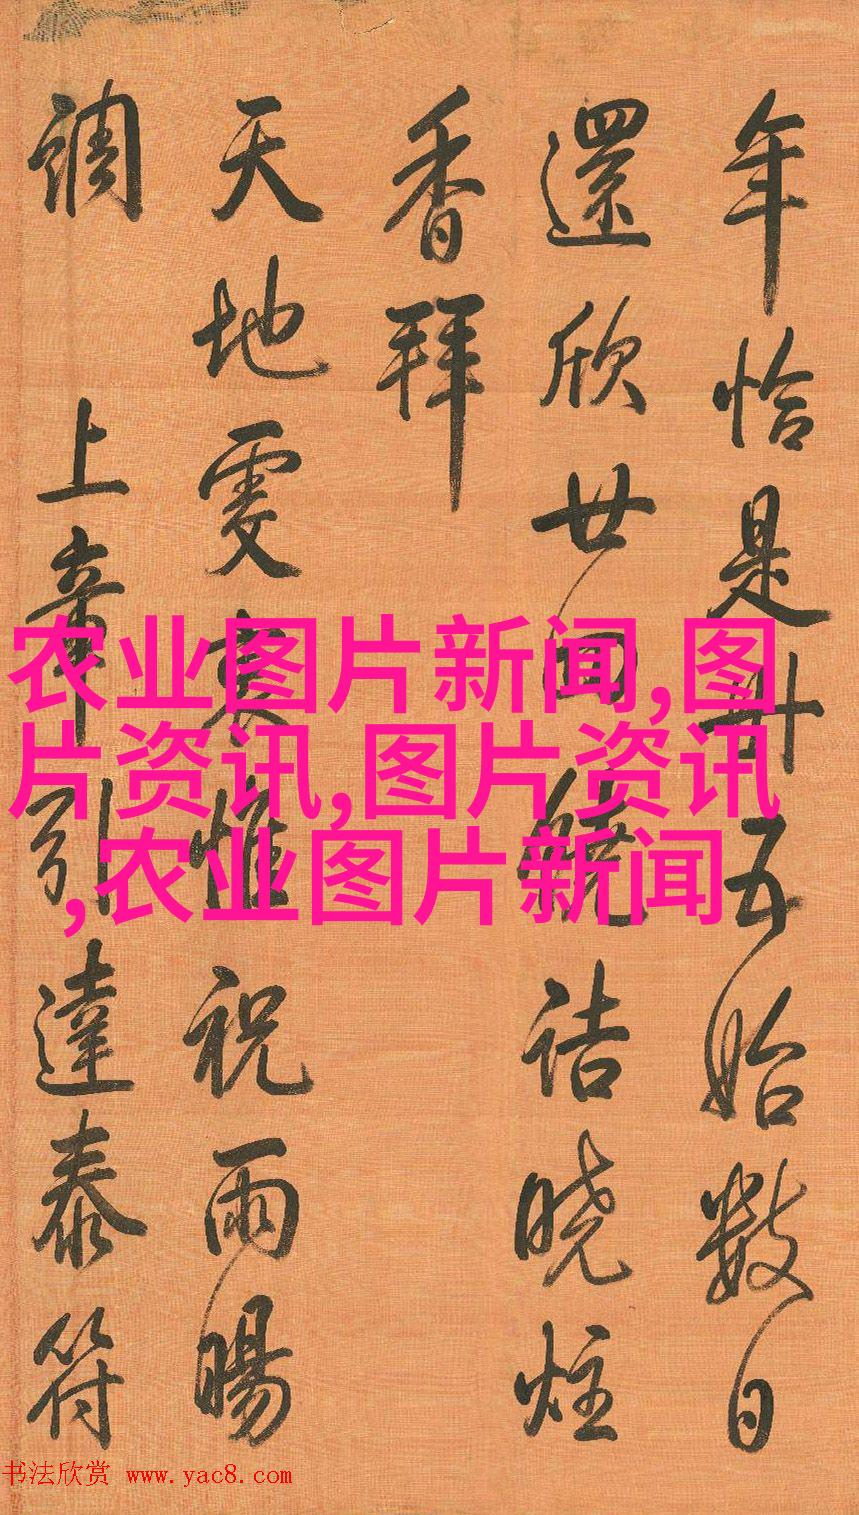 年恰是廿五始数日
還欣廿四繞詰曉炷
香拜
天地雯裏惟祝雨暘
調
上章引達泰符
农业图片新闻,图
片资讯,图片资讯
,农业图片新闻
书法欣赏 www.yac8.com